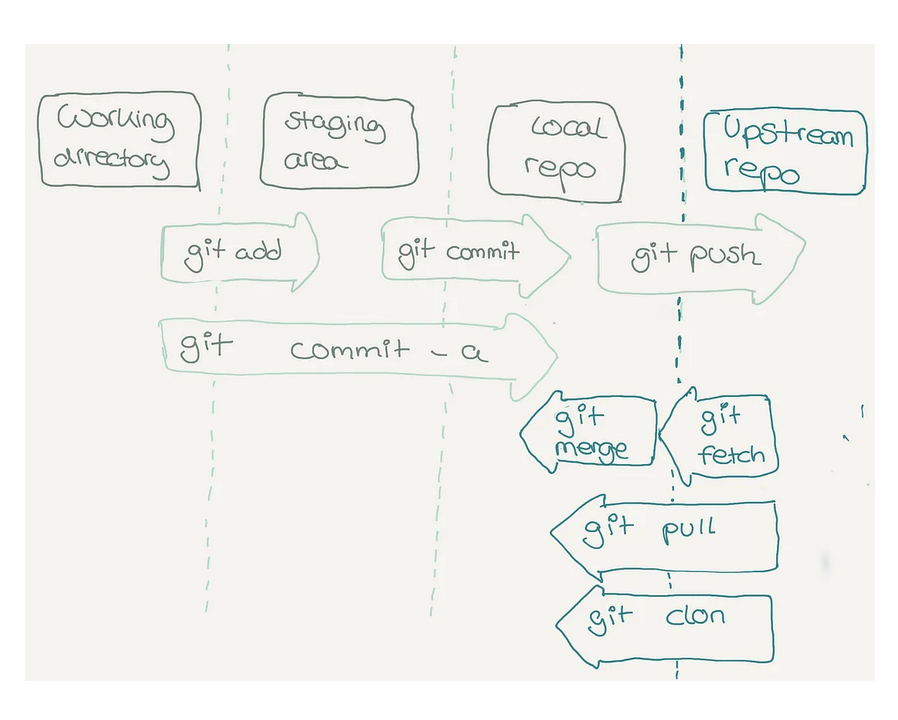 Working
directory
staging
area
Local
repo
Upstream
repo
git add
git commit
git push
git commit - a
git
merge
git
fetch
git pull
git clon